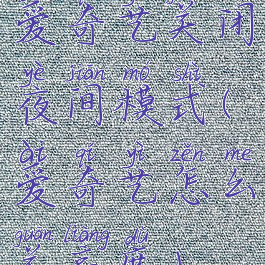 爱奇艺关闭
yè jiān mó shì
夜间模式(
ài qí yì zěn me
爱奇艺怎么
guān liàng dù
关亮度)